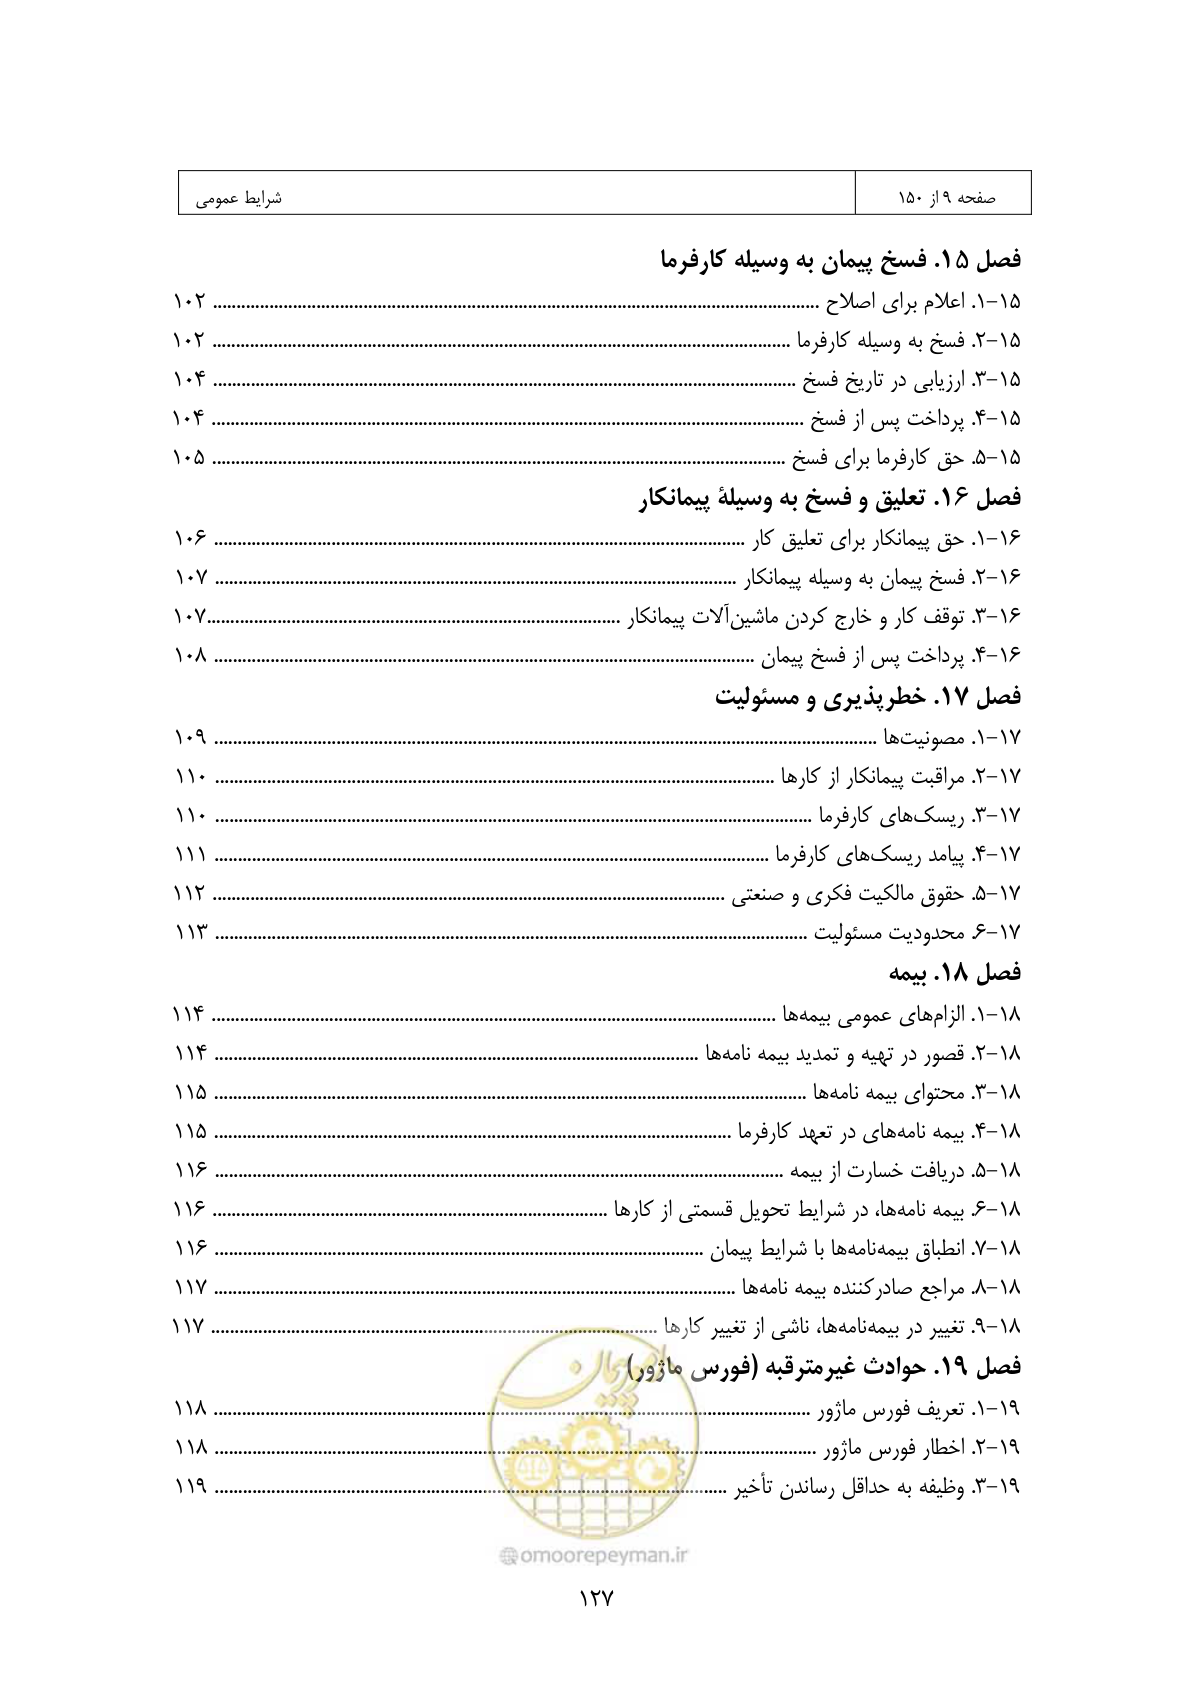 صفحه ۹ از ۱۵۰
شرایط عمومی
فصل ۱۵. فسخ پیمان به وسیله کارفرما
۱۵-۱. اعلام برای اصلاح ........................................ ۱۰۲
۱۵-۲. فسخ به وسیله کارفرما ........................................ ۱۰۲
۱۵-۳. ارزیابی در تاریخ فسخ ........................................ ۱۰۴
۱۵-۴. پرداخت پس از فسخ ........................................ ۱۰۴
۱۵-۵. حق کارفرما برای فسخ ........................................ ۱۰۵
فصل ۱۶. تعلیق و فسخ به وسیلۀ پیمانکار
۱۶-۱. حق پیمانکار برای تعلیق کار ........................................ ۱۰۶
۱۶-۲. فسخ پیمان به وسیله پیمانکار ........................................ ۱۰۷
۱۶-۳. توقف کار و خارج کردن ماشین‌آلات پیمانکار ........................................ ۱۰۷
۱۶-۴. پرداخت پس از فسخ پیمان ........................................ ۱۰۸
فصل ۱۷. خطرپذیری و مسئولیت
۱۷-۱. مصونیت‌ها ........................................ ۱۰۹
۱۷-۲. مراقبت پیمانکار از کارها ........................................ ۱۱۰
۱۷-۳. ریسک‌های کارفرما ........................................ ۱۱۰
۱۷-۴. پیامد ریسک‌های کارفرما ........................................ ۱۱۱
۱۷-۵. حقوق مالکیت فکری و صنعتی ........................................ ۱۱۲
۱۷-۶. محدودیت مسئولیت ........................................ ۱۱۳
فصل ۱۸. بیمه
۱۸-۱. الزام‌های عمومی بیمه‌ها ........................................ ۱۱۴
۱۸-۲. قصور در تهیه و تمدید بیمه نامه‌ها ........................................ ۱۱۴
۱۸-۳. محتوای بیمه نامه‌ها ........................................ ۱۱۵
۱۸-۴. بیمه نامه‌های در تعهد کارفرما ........................................ ۱۱۵
۱۸-۵. دریافت خسارت از بیمه ........................................ ۱۱۶
۱۸-۶. بیمه نامه‌ها، در شرایط تحویل قسمتی از کارها ........................................ ۱۱۶
۱۸-۷. انطباق بیمه‌نامه‌ها با شرایط پیمان ........................................ ۱۱۶
۱۸-۸. مراجع صادرکننده بیمه نامه‌ها ........................................ ۱۱۷
۱۸-۹. تغییر در بیمه‌نامه‌ها، ناشی از تغییر کارها ........................................ ۱۱۷
فصل ۱۹. حوادث غیرمترقبه (فورس ماژور)
۱۹-۱. تعریف فورس ماژور ........................................ ۱۱۸
۱۹-۲. اخطار فورس ماژور ........................................ ۱۱۸
۱۹-۳. وظیفه به حداقل رساندن تأخیر ........................................ ۱۱۹
امور پیمان
@omoorepeyman.ir
۱۲۷